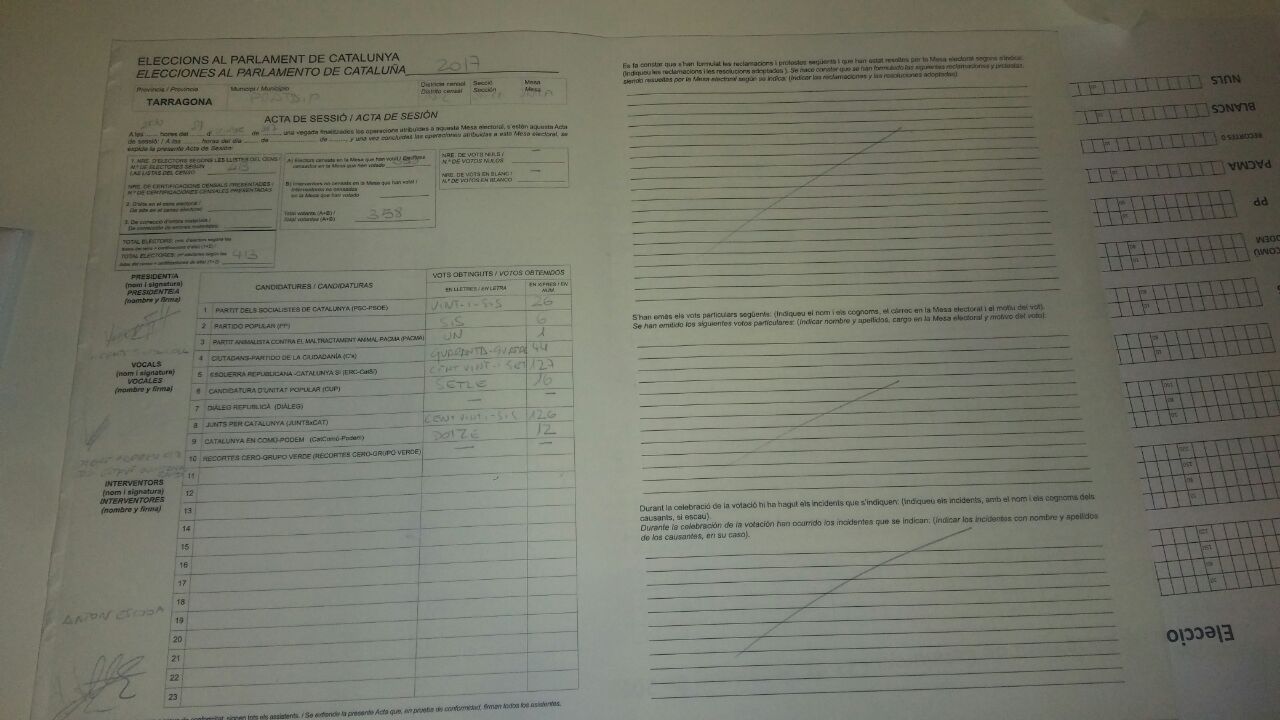 ELECCIONS AL PARLAMENT DE CATALUNYA
ELECCIONES AL PARLAMENTO DE CATALUÑA 2017
Provincia / Província
TARRAGONA
Municipi / Municipio
Districte censal
Distrito censal
Secció
Sección
Mesa
Mesa
ACTA DE SESSIÓ / ACTA DE SESIÓN
A les hores del d de una vegada finalitzades les operacions atribuïdes a aquesta Mesa electoral, s'estén aquesta Acta
de sessió: / A las horas del día de de y una vez concluidas las operaciones atribuidas a esta Mesa electoral, se
expide la presente Acta de Sesión:
1. NRE. D'ELECTORS SEGONS LES LLISTES DEL CENS /
N.º DE ELECTORES SEGÚN
LAS LISTAS DEL CENSO 413
NRE. DE CERTIFICACIONS CENSALS PRESENTADES /
N.º DE CERTIFICACIONES CENSALES PRESENTADAS
2. D'alta en el cens electoral /
De alta en el censo electoral
3. De correcció d'errors materials /
De corrección de errores materiales
TOTAL ELECTORS:
TOTAL ELECTORES: 413
A) Electors censats en la Mesa que han votat /
censados en la Mesa que han votado
B) Interventors no censats en la Mesa que han votat /
Interventores no censados
en la Mesa que han votado
Total votants (A+B) /
Total votantes (A+B) 358
NRE. DE VOTS NULS /
N.º DE VOTOS NULOS —
NRE. DE VOTS EN BLANC /
N.º DE VOTOS EN BLANCO —
PRESIDENT/A
(nom i signatura)
PRESIDENTE/A
(nombre y firma)
VOCALS
(nom i signatura)
VOCALES
(nombre y firma)
INTERVENTORS
(nom i signatura)
INTERVENTORES
(nombre y firma)
ANTON ESCODA
CANDIDATURES / CANDIDATURAS
VOTS OBTINGUTS / VOTOS OBTENIDOS
EN LLETRES / EN LETRA
EN XIFRES / EN NÚM.
1 PARTIT DELS SOCIALISTES DE CATALUNYA (PSC-PSOE) VINT-I-SIS 26
2 PARTIDO POPULAR (PP) SIS 6
3 PARTIT ANIMALISTA CONTRA EL MALTRACTAMENT ANIMAL-PACMA (PACMA) UN 1
4 CIUTADANS-PARTIDO DE LA CIUDADANÍA (C's) QUARANTA-QUATRE 44
5 ESQUERRA REPUBLICANA-CATALUNYA SÍ (ERC-CatSí) CENT VINT-I-SET 127
6 CANDIDATURA D'UNITAT POPULAR (CUP) SETZE 16
7 DIÀLEG REPUBLICÀ (DIÀLEG) — —
8 JUNTS PER CATALUNYA (JUNTSxCAT) CENT VINT-I-SIS 126
9 CATALUNYA EN COMÚ-PODEM (CatComú-Podem) DOTZE 12
10 RECORTES CERO-GRUPO VERDE (RECORTES CERO-GRUPO VERDE) — —
11
12
13
14
15
16
17
18
19
20
21
22
23
signen tots els assistents. / Se extiende la presente Acta que, en prueba de conformidad, firman todos los asistentes.
Es fa constar que s'han formulat les reclamacions i protestes següents i que han estat resoltes per la Mesa electoral segons s'indica:
(Indiqueu les reclamacions i les resolucions adoptades). Se hace constar que se han formulado las siguientes reclamaciones y protestas,
siendo resueltas por la Mesa electoral según se indica: (Indicar las reclamaciones y las resoluciones adoptadas).
S'han emès els vots particulars següents: (Indiqueu el nom i els cognoms, el càrrec en la Mesa electoral i el motiu del vot).
Se han emitido los siguientes votos particulares: (Indicar nombre y apellidos, cargo en la Mesa electoral y motivo del voto).
Durant la celebració de la votació hi ha hagut els incidents que s'indiquen: (Indiqueu els incidents, amb el nom i els cognoms dels
causants, si escau).
Durante la celebración de la votación han ocurrido los incidentes que se indican: (Indicar los incidentes con nombre y apellidos
de los causantes, en su caso).
NULS
BLANCS
RECORTES 0
PACMA
PP
COMÚ
PODEM
Eleccio